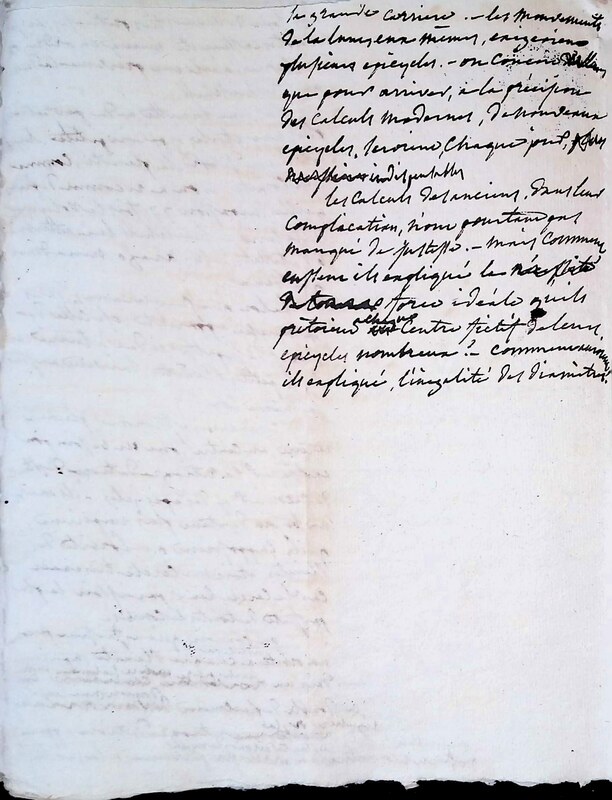 la grande carriere. - les mouvements
de la lune, eux memes, exigeoient
plusieurs epicycles. - on concevoit
que pour arriver, a la précision
des calculs modernes, de nouveaux
epicycles, seroient, chaque jour,
indispensables
les calculs des anciens, dans leur
complication, n'ont pourtant pas
manqué de justesse. - mais comment
eussent ils expliqué la
force idéale qu'ils
prêtoient centre fictif de leurs
epicycles nombreux ? - comment auroient
ils expliqué, l'inégalité des diamètres.